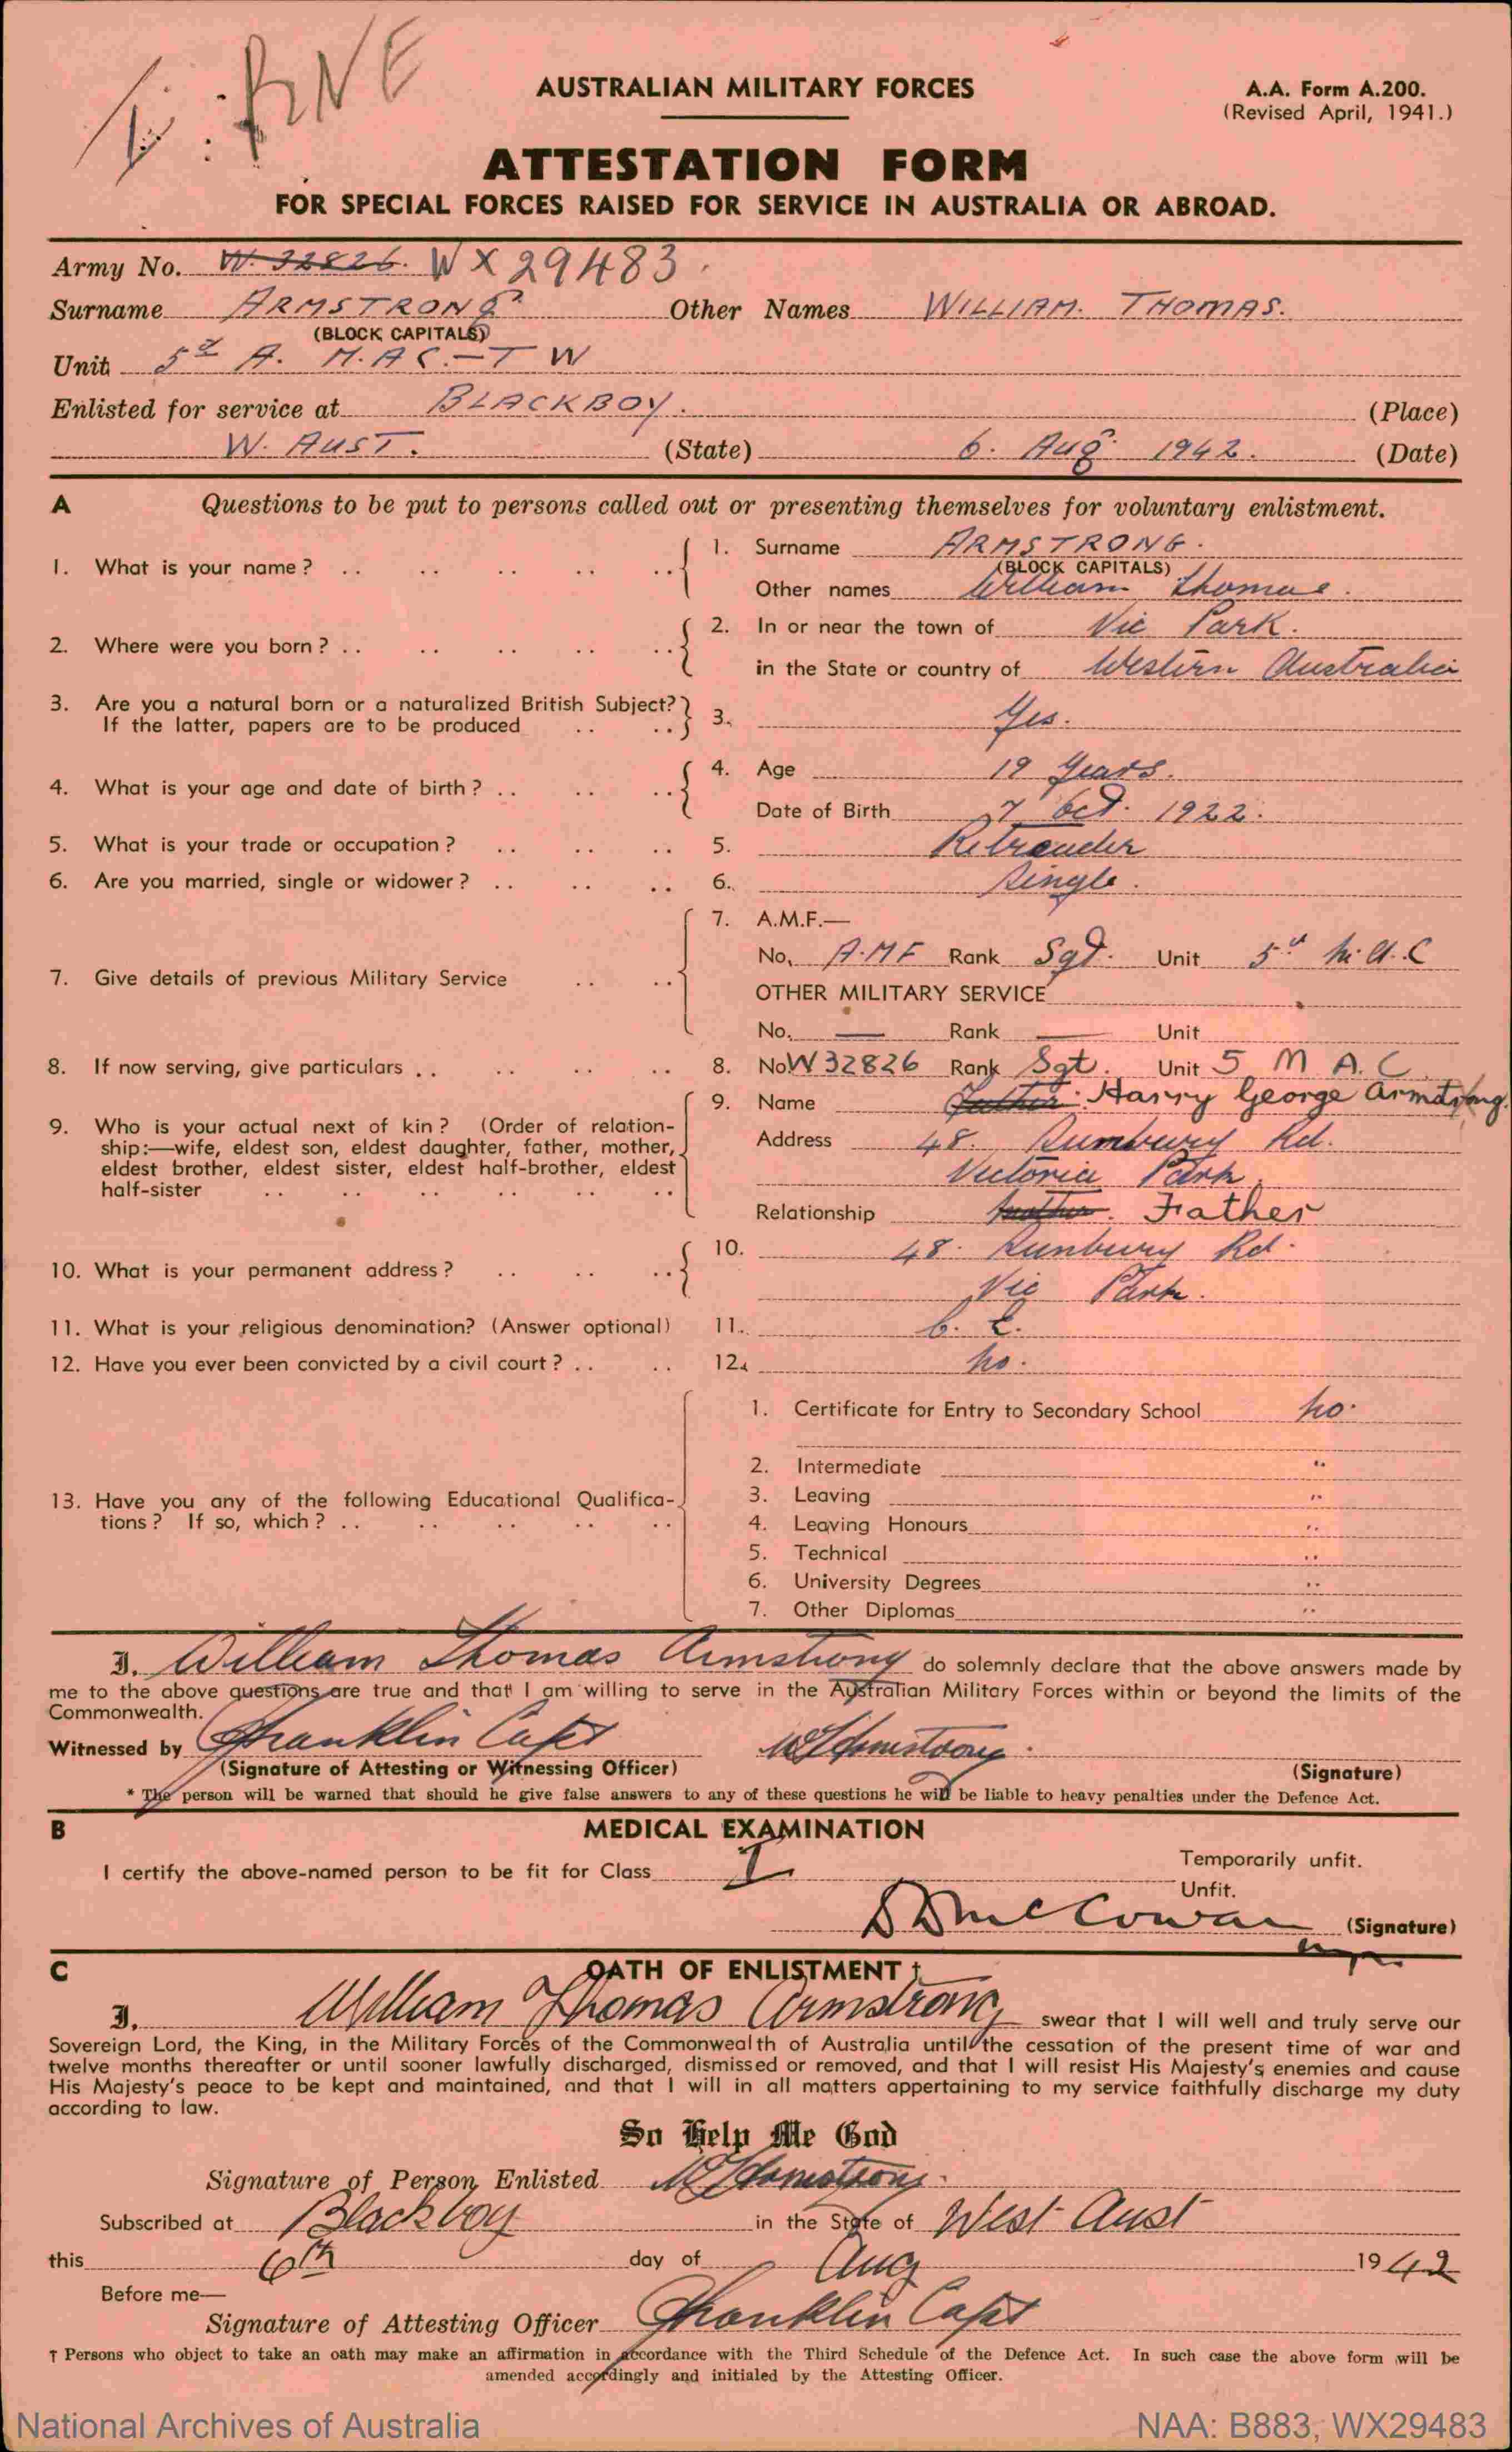 BNE
AUSTRALIAN MILITARY FORCES
A.A. Form A.200.
(Revised April, 1941.)
ATTESTATION FORM
FOR SPECIAL FORCES RAISED FOR SERVICE IN AUSTRALIA OR ABROAD.
Army No. W. 32826. WX29483.
Surname ARMSTRONG Other Names WILLIAM. THOMAS.
(BLOCK CAPITALS)
Unit 5th A. M.A.C.-T W
Enlisted for service at BLACKBOY. (Place)
W. AUST. (State) 6. Aug. 1942. (Date)
A Questions to be put to persons called out or presenting themselves for voluntary enlistment.
1. What is your name? .. .. .. .. .. 1. Surname ARMSTRONG.
(BLOCK CAPITALS)
Other names William Thomas.
2. Where were you born? .. .. .. .. .. 2. In or near the town of Vic Park.
in the State or country of Western Australia
3. Are you a natural born or a naturalized British Subject? If the latter, papers are to be produced .. .. 3. Yes.
4. What is your age and date of birth? .. .. .. 4. Age 19 Years.
Date of Birth 7 Oct. 1922.
5. What is your trade or occupation? .. .. .. 5. Retreader
6. Are you married, single or widower? .. .. .. 6. Single.
7. Give details of previous Military Service .. .. 7. A.M.F.—
No. A.MF Rank Sgt. Unit 5th M.A.C
OTHER MILITARY SERVICE
No. — Rank — Unit
8. If now serving, give particulars .. .. .. .. 8. No W32826 Rank Sgt. Unit 5 M A.C.
9. Who is your actual next of kin? (Order of relation-
ship:—wife, eldest son, eldest daughter, father, mother,
eldest brother, eldest sister, eldest half-brother, eldest
half-sister .. .. .. .. .. ..
9. Name Father: Harry George Armstrong.
Address 48. Bunbury Rd.
Victoria Park.
Relationship Father
10. What is your permanent address? .. .. .. 10. 48. Bunbury Rd.
Vic Park.
11. What is your religious denomination? (Answer optional) 11. C. E.
12. Have you ever been convicted by a civil court? .. .. 12. No.
13. Have you any of the following Educational Qualifica-
tions? If so, which? .. .. .. .. ..
1. Certificate for Entry to Secondary School No.
2. Intermediate "
3. Leaving "
4. Leaving Honours "
5. Technical "
6. University Degrees "
7. Other Diplomas "
I. William Thomas Armstrong do solemnly declare that the above answers made by
me to the above questions are true and that I am willing to serve in the Australian Military Forces within or beyond the limits of the
Commonwealth.
Witnessed by Franklin Capt WT Armstrong.
(Signature of Attesting or Witnessing Officer) (Signature)
* The person will be warned that should he give false answers to any of these questions he will be liable to heavy penalties under the Defence Act.
B MEDICAL EXAMINATION
I certify the above-named person to be fit for Class I
Temporarily unfit.
Unfit.
McCowan (Signature)
C OATH OF ENLISTMENT †
I. William Thomas Armstrong swear that I will well and truly serve our
Sovereign Lord, the King, in the Military Forces of the Commonwealth of Australia until the cessation of the present time of war and
twelve months thereafter or until sooner lawfully discharged, dismissed or removed, and that I will resist His Majesty's enemies and cause
His Majesty's peace to be kept and maintained, and that I will in all matters appertaining to my service faithfully discharge my duty
according to law.
So Help Me God
Signature of Person Enlisted WT Armstrong.
Subscribed at Blackboy in the State of West Aust
this 6th day of Aug 1942
Before me—
Signature of Attesting Officer Franklin Capt
† Persons who object to take an oath may make an affirmation in accordance with the Third Schedule of the Defence Act. In such case the above form will be
amended accordingly and initialed by the Attesting Officer.
National Archives of Australia NAA: B883, WX29483